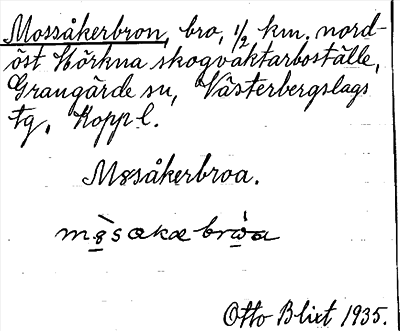 Mossåkerbron, bro, 1/2 km. nord-
öst Hörkna skogvaktarboställe,
Grangärde sn, Västerbergslags
tg, Koppl.
Mosåkerbroa.
Otto Blixt 1935.